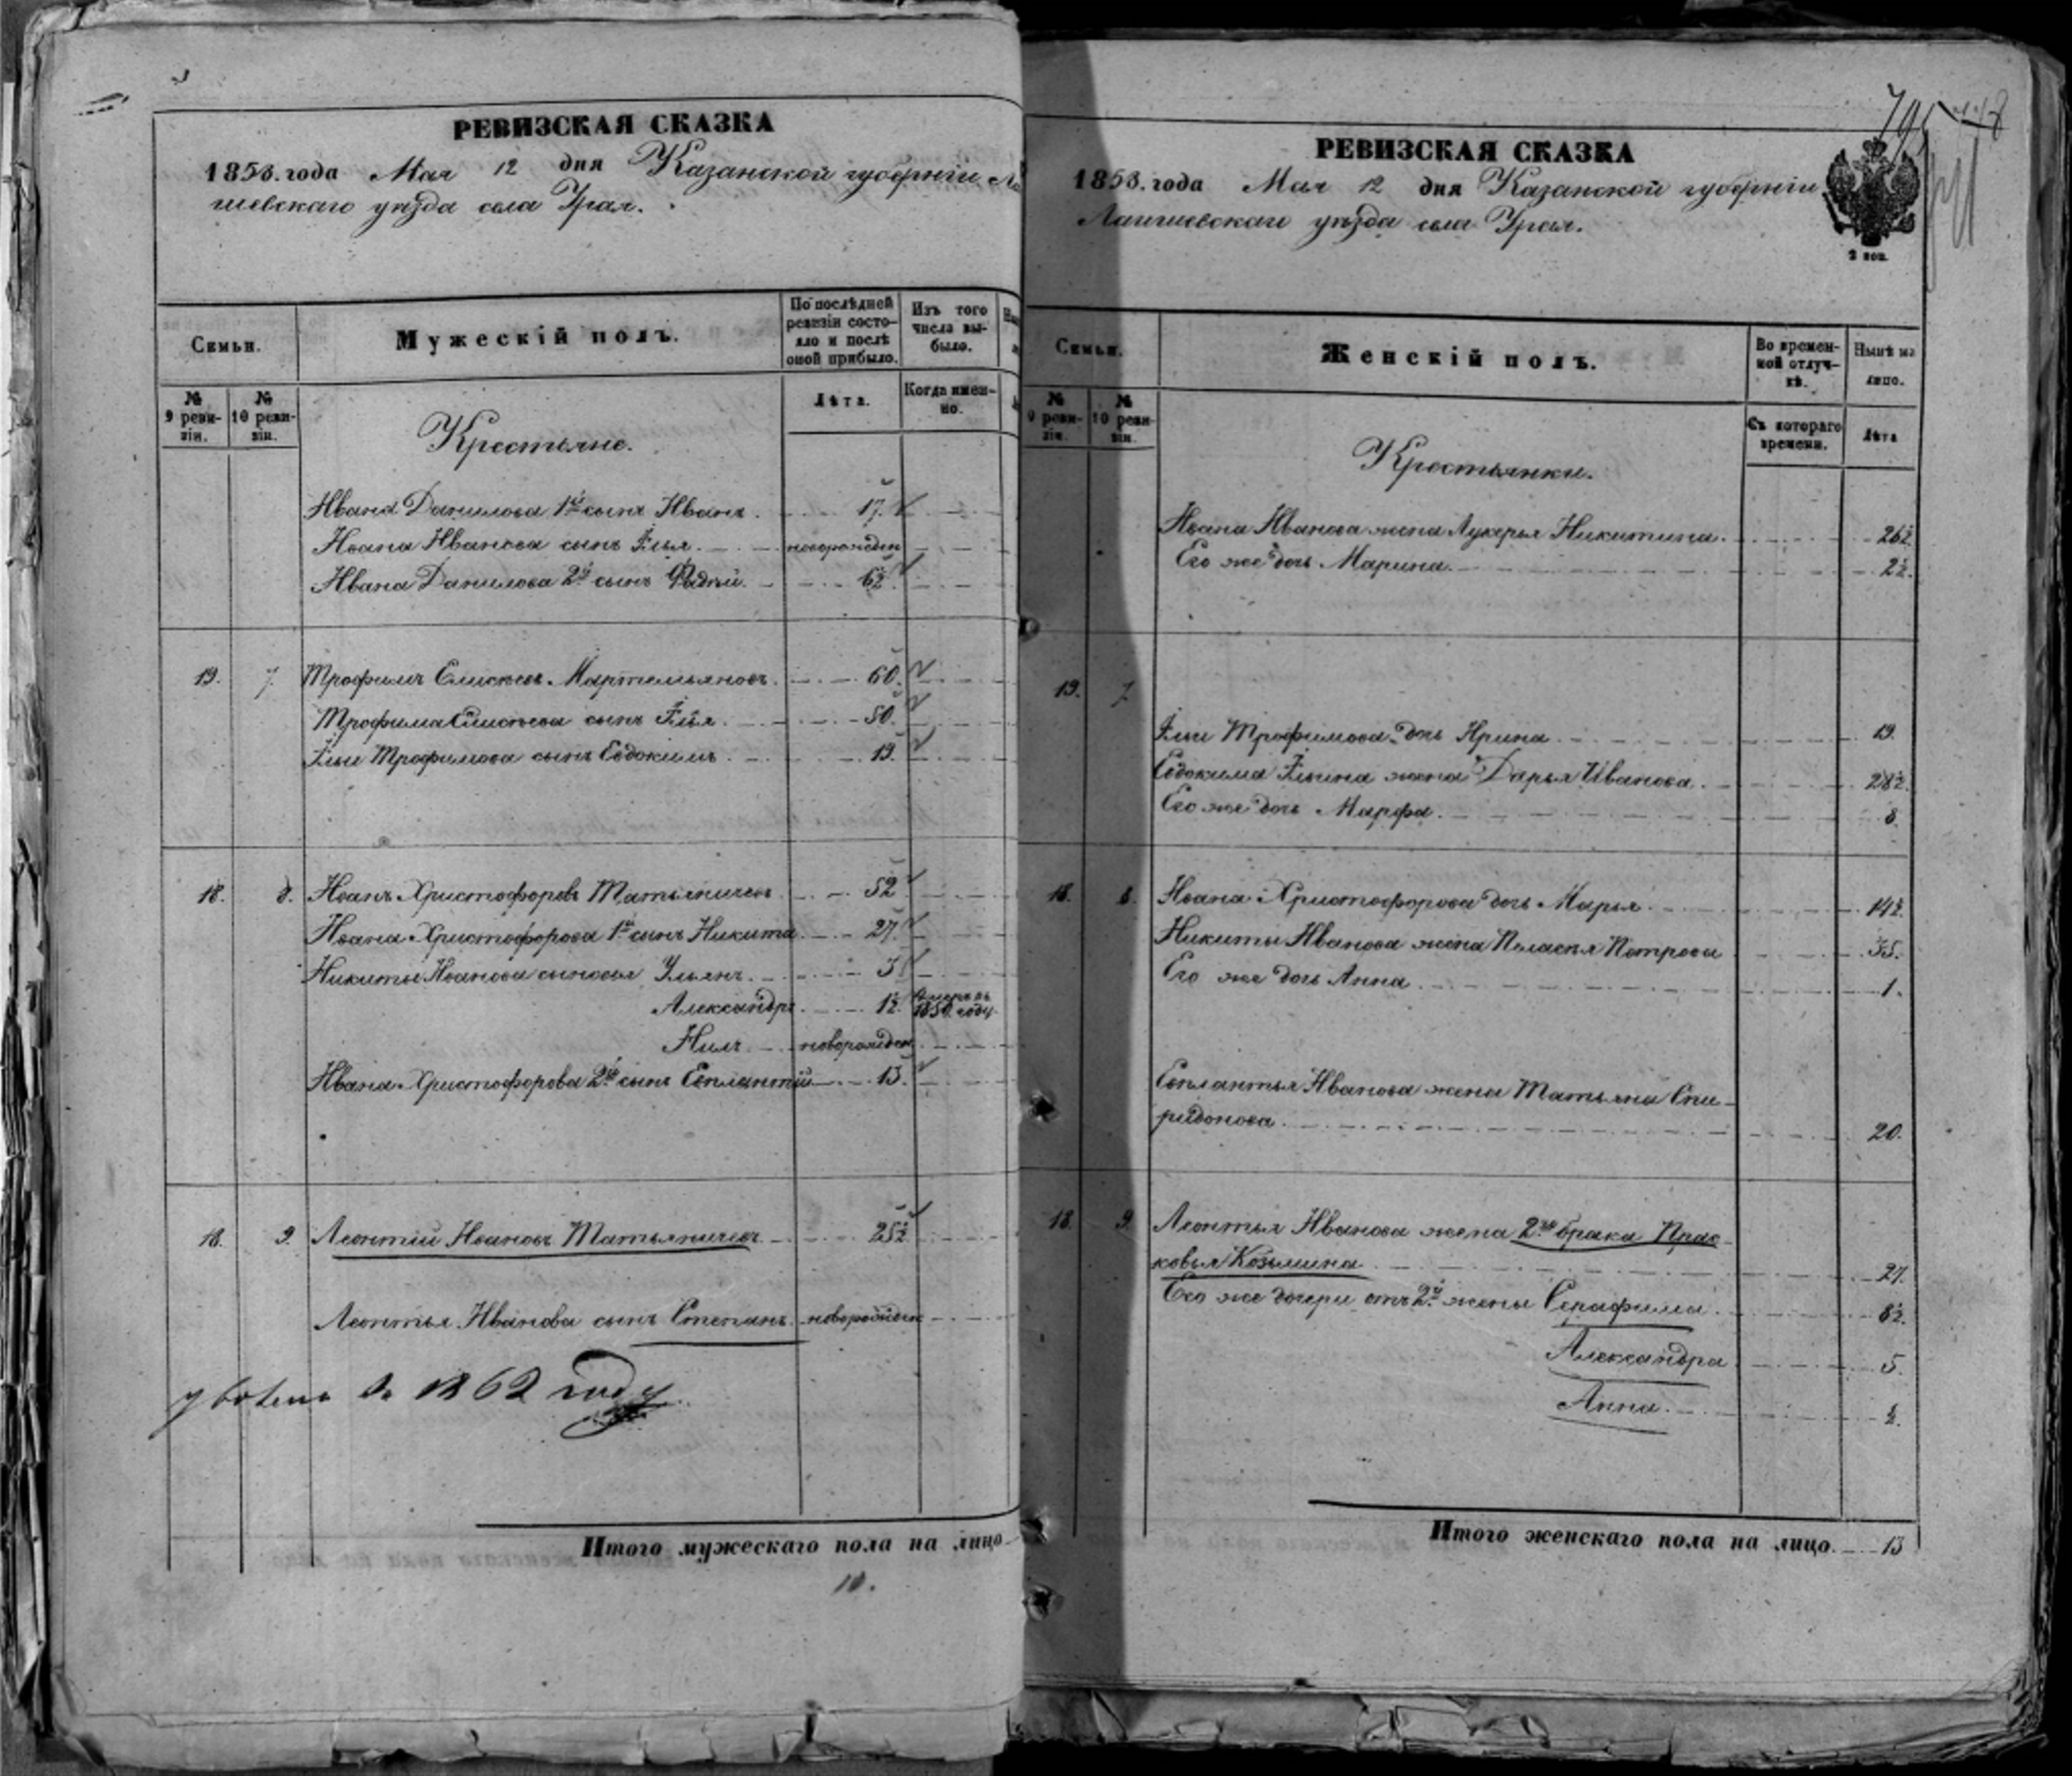 РЕВИЗСКАЯ СКАЗКА
1858. года Мая 12 дня Казанской губерніи Ла
ишевскаго уѣзда села Урая.
Семьи.
Мужескій полъ.
По послѣдней ревизіи состо-
яло и послѣ
оной прибыло.
Изъ того
числа вы-
было.
№
9 реви-
зіи.
№
10 реви-
зіи.
Лѣта.
Когда имен-
но.
Крестьяне.
Ивана Данилова 1й сынъ Иванъ 17.
Ивана Иванова сынъ Илья новорожден
Ивана Данилова 2й сынъ 6½
19. 7. Трофимъ Елисѣевъ Мартемьяновъ 60.
Трофима Елисѣева сынъ Илья 50.
Ильи Трофимова сынъ Евдокимъ 19.
18. 8. Иванъ Христофоровъ Матьяничевъ 52
Ивана Христофорова 1й сынъ Никита 27.
Никиты Иванова сыновья Ульянъ 3
Александръ 1½ Умеръ въ
1850. году
Нилъ новорожден
Ивана Христофорова 2й сынъ Евплантій 13.
18. 9. Леонтій Ивановъ Матьяничевъ 25½
Леонтья Иванова сынъ Степанъ новорожден
уволенъ въ 1862 году
Итого мужескаго пола на лицо
10.
РЕВИЗСКАЯ СКАЗКА
1858. года Мая 12 дня Казанской губерніи
Лаишевскаго уѣзда села Урая.
2 коп.
Семьи.
Женскій полъ.
Во времен-
ной отлуч-
кѣ.
Нынѣ на
лицо.
№
9 реви-
зіи.
№
10 реви-
зіи.
Съ котораго
времени.
Лѣта
Крестьянки.
Ивана Иванова жена Лукерья Никитина 26½
Его же дочь Марина 2½.
19. 7.
Ильи Трофимова дочь Ирина 19.
Евдокима Ильина жена Дарья Иванова 28½.
Его же дочь Марфа 8.
18. 8. Ивана Христофорова дочь Марья 14½.
Никиты Иванова жена Пелагея Петрова 35.
Его же дочь Анна 1.
Евплантья Иванова жена Татьяна Спи-
ридонова 20.
18. 9. Леонтья Иванова жена 2го брака Прас-
ковья Козьмина 27.
Его же дочери отъ 2й жены Серафима 8½.
Александра 5.
Анна. ½.
Итого женскаго пола на лицо 13